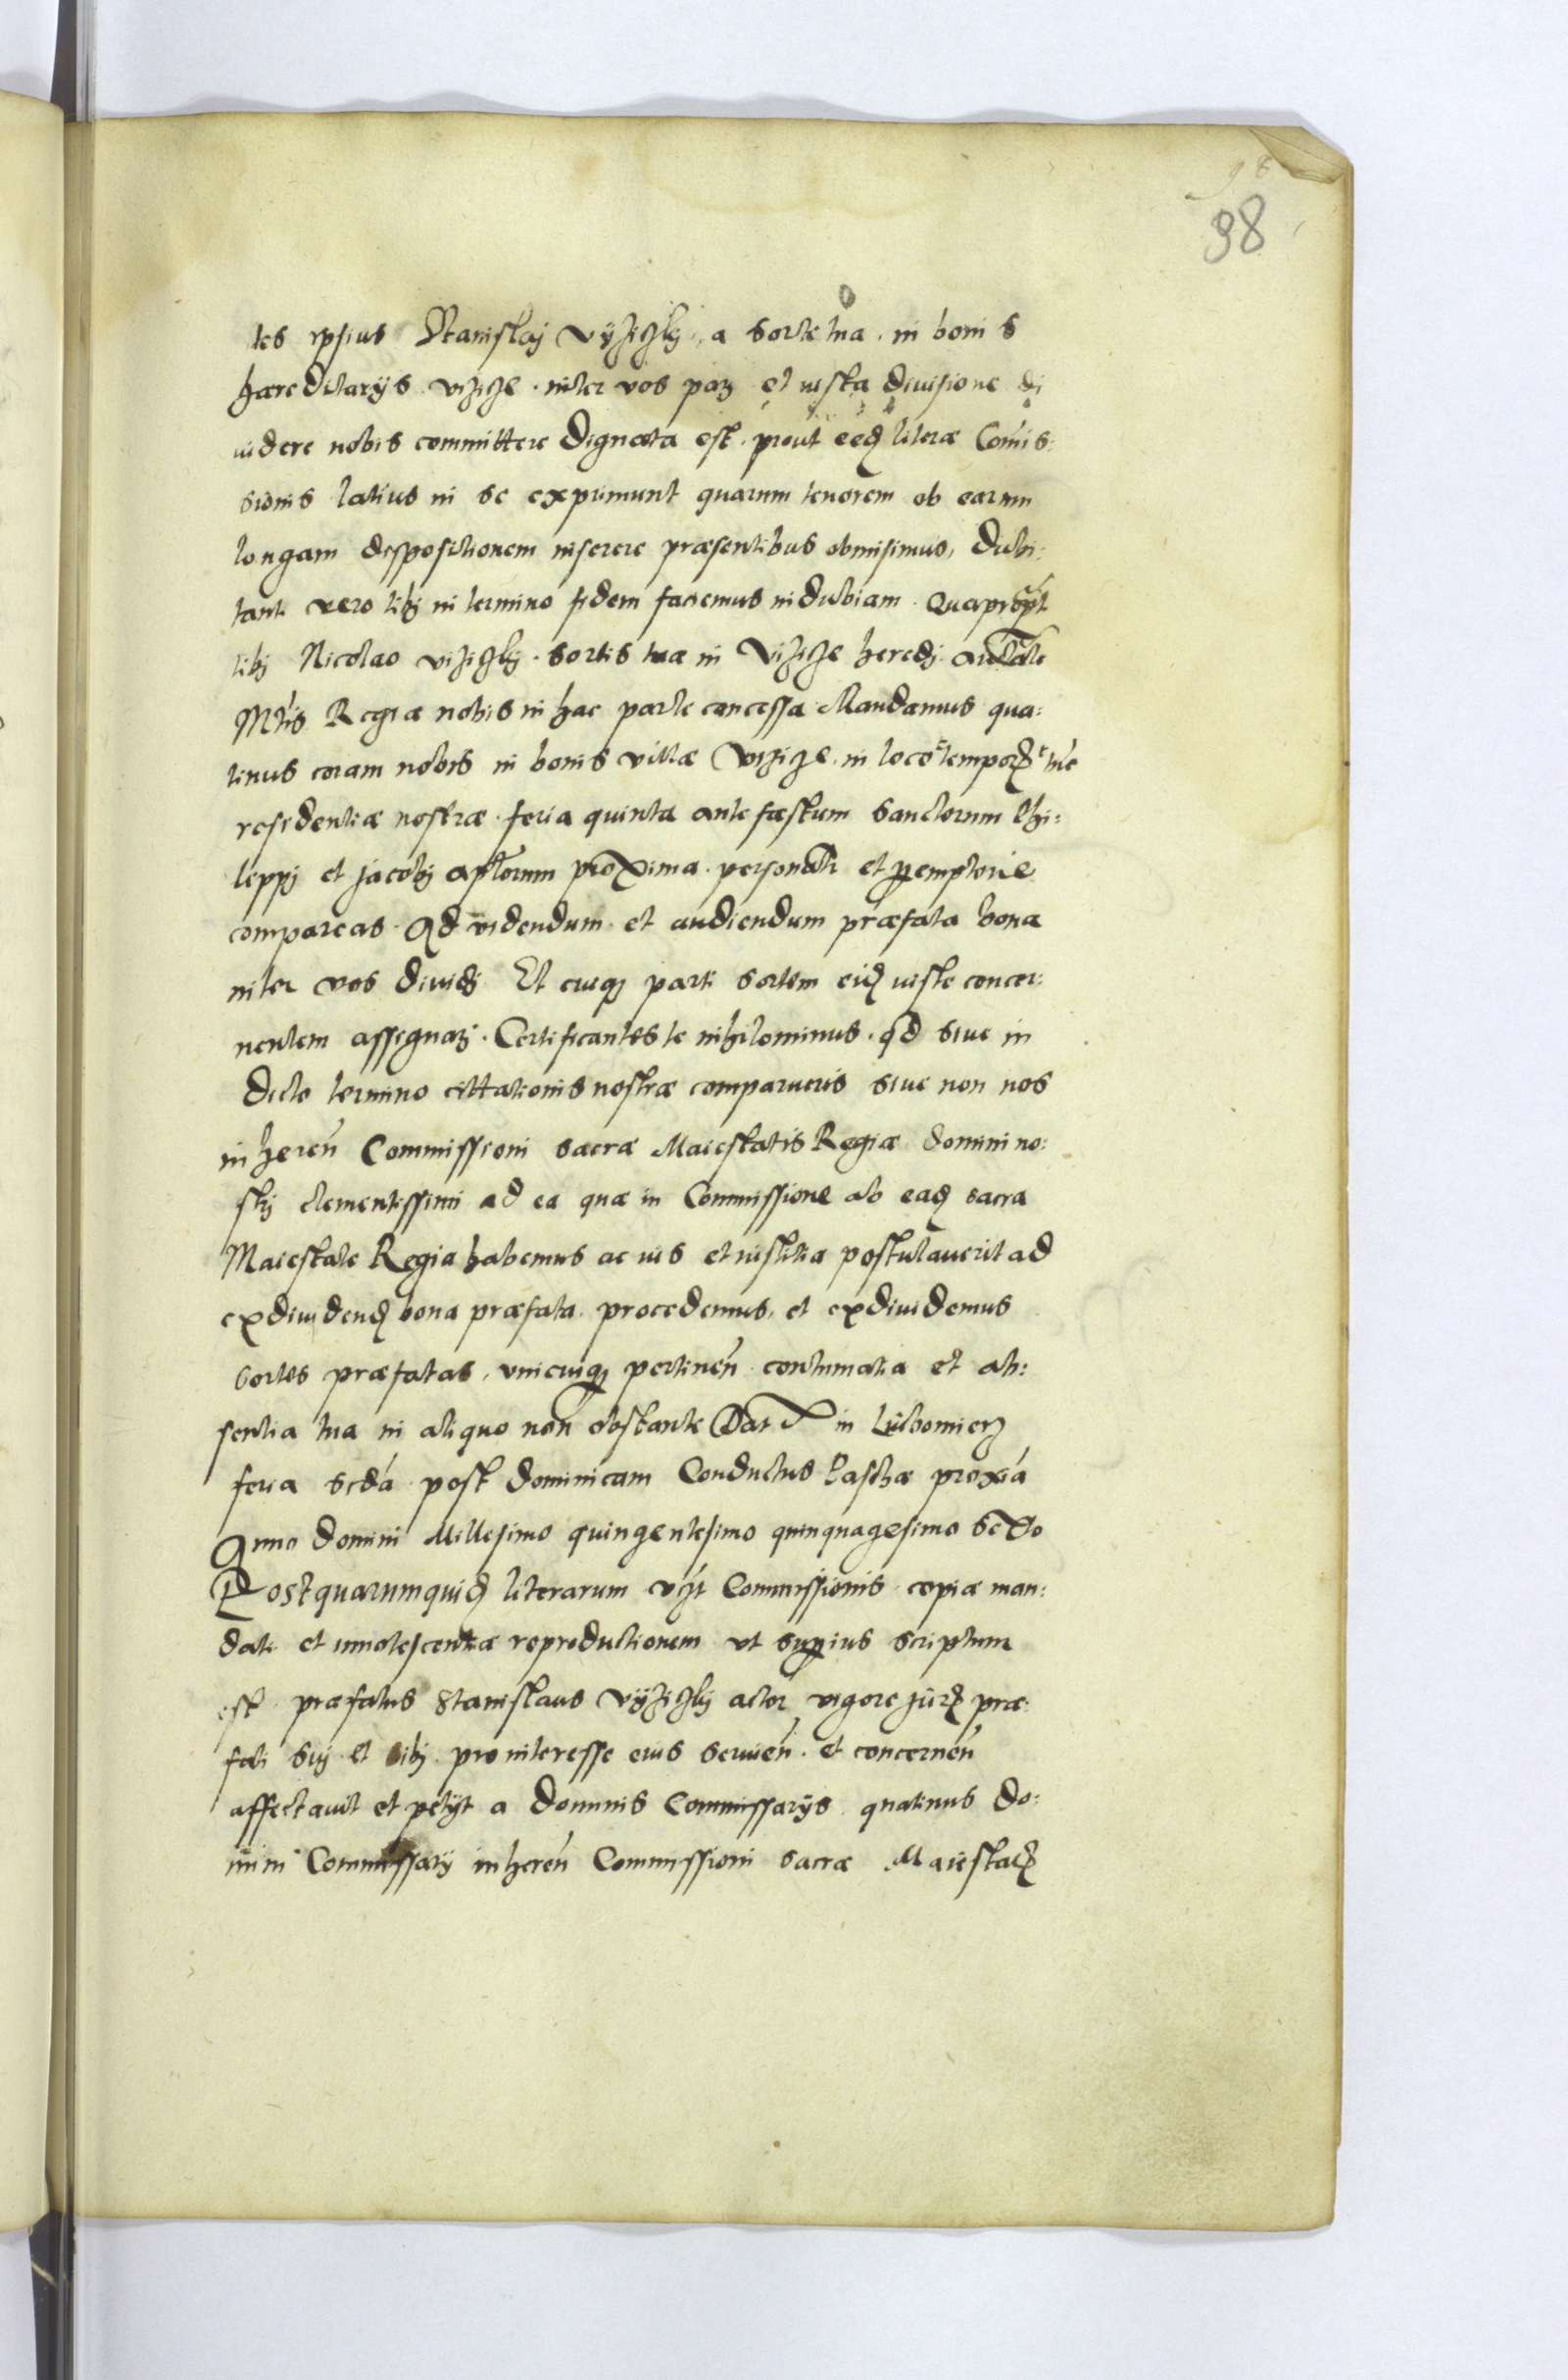 98
98
tes ipsius Stanislaj Vyzizkj, a sorte tua. in bonis
hæreditarÿs vizize. inter vos parj et iusta diuisione di
uidere nobis committere dignata est. prout eedẽ literæ Comis:
sionis latius in se exprimunt quarum tenorem ob earum
longam dispositionem inserere præsentibus obmisimus, dubi:
tanti vero tibj in termino fidem faciemus indubiam. Quaproptˀ
tibj Nicolao vizizkj. sortis tuæ in Vizize heredj auctãte
Mtis Regiæ nobis in hac parte concessa Mandamus qua:
tinus coram nobis in bonis villæ Vizize. in loco et temporẽ tũc
residentiæ nostræ. feria quinta ante fæstum Sanctorum Phi:
lippj et Jacobj aptorum proxima. personatr et peremptorie
compareas. Ad videndum. et audiendum præfata bona
inter vos diuidj Et cuiqȝ parti sortem eidẽ iuste concer:
nentem assignarj. Certificantes te nihilominus. qd siue in
dicto termino cittationis nostræ comparueris siue non nos
inheren̄ Commissioni sacræ Maiestatis Regiæ domini no:
strj clementissimi ad ea quæ in Commissione ab eadẽ sacra
Maiestate Regia habemus ac ius et iustitia postulauerit ad
exdiuidendũ bona præfata. procedemus. et exdiuidemus
sortes præfatas, vnicuiqȝ pertinen̄ contumatia et ab:
sentia tua in aliquo non obstante Dat in Lubomierz
feria scdá post dominicam Conductus Paschæ proxiá
Anno domini Millesimo quingentesimo quinquagesimo sexto
Postquarumquidẽ literarum vizt Commissionis copiæ man:
dati et innotescentiæ reproductionem vt superius scriptum
est. præfatus Stanislaus Vÿzizkj actor vigore jurẽ præ:
fati sui et sibj pro interesse eius seruien̄. et concernen̄
affectauit et petÿt a dominis Commissarÿs quatinus do:
mini Commissarÿ inheren̄ Commissioni sacræ Maiestatẽ